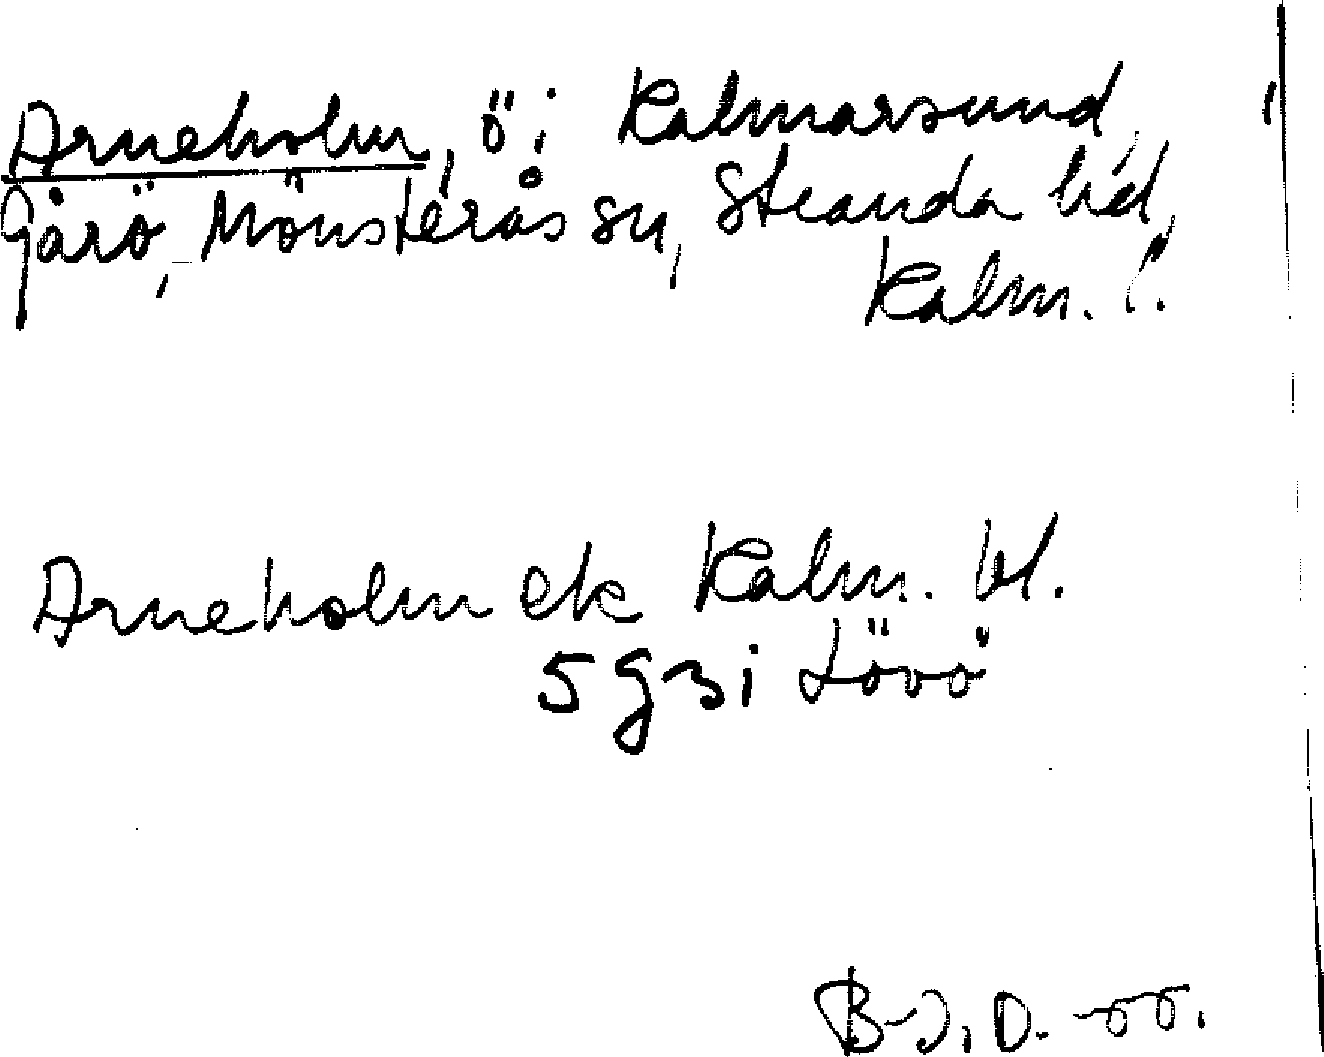 Arneholm, ö i Kalmarsund,
Gårö, Mönsterås sn, Stranda hd,
Kalm. l.
Arneholm ek Kalm. bl.
5 g 3 i Lövö
B-J. D. -66.